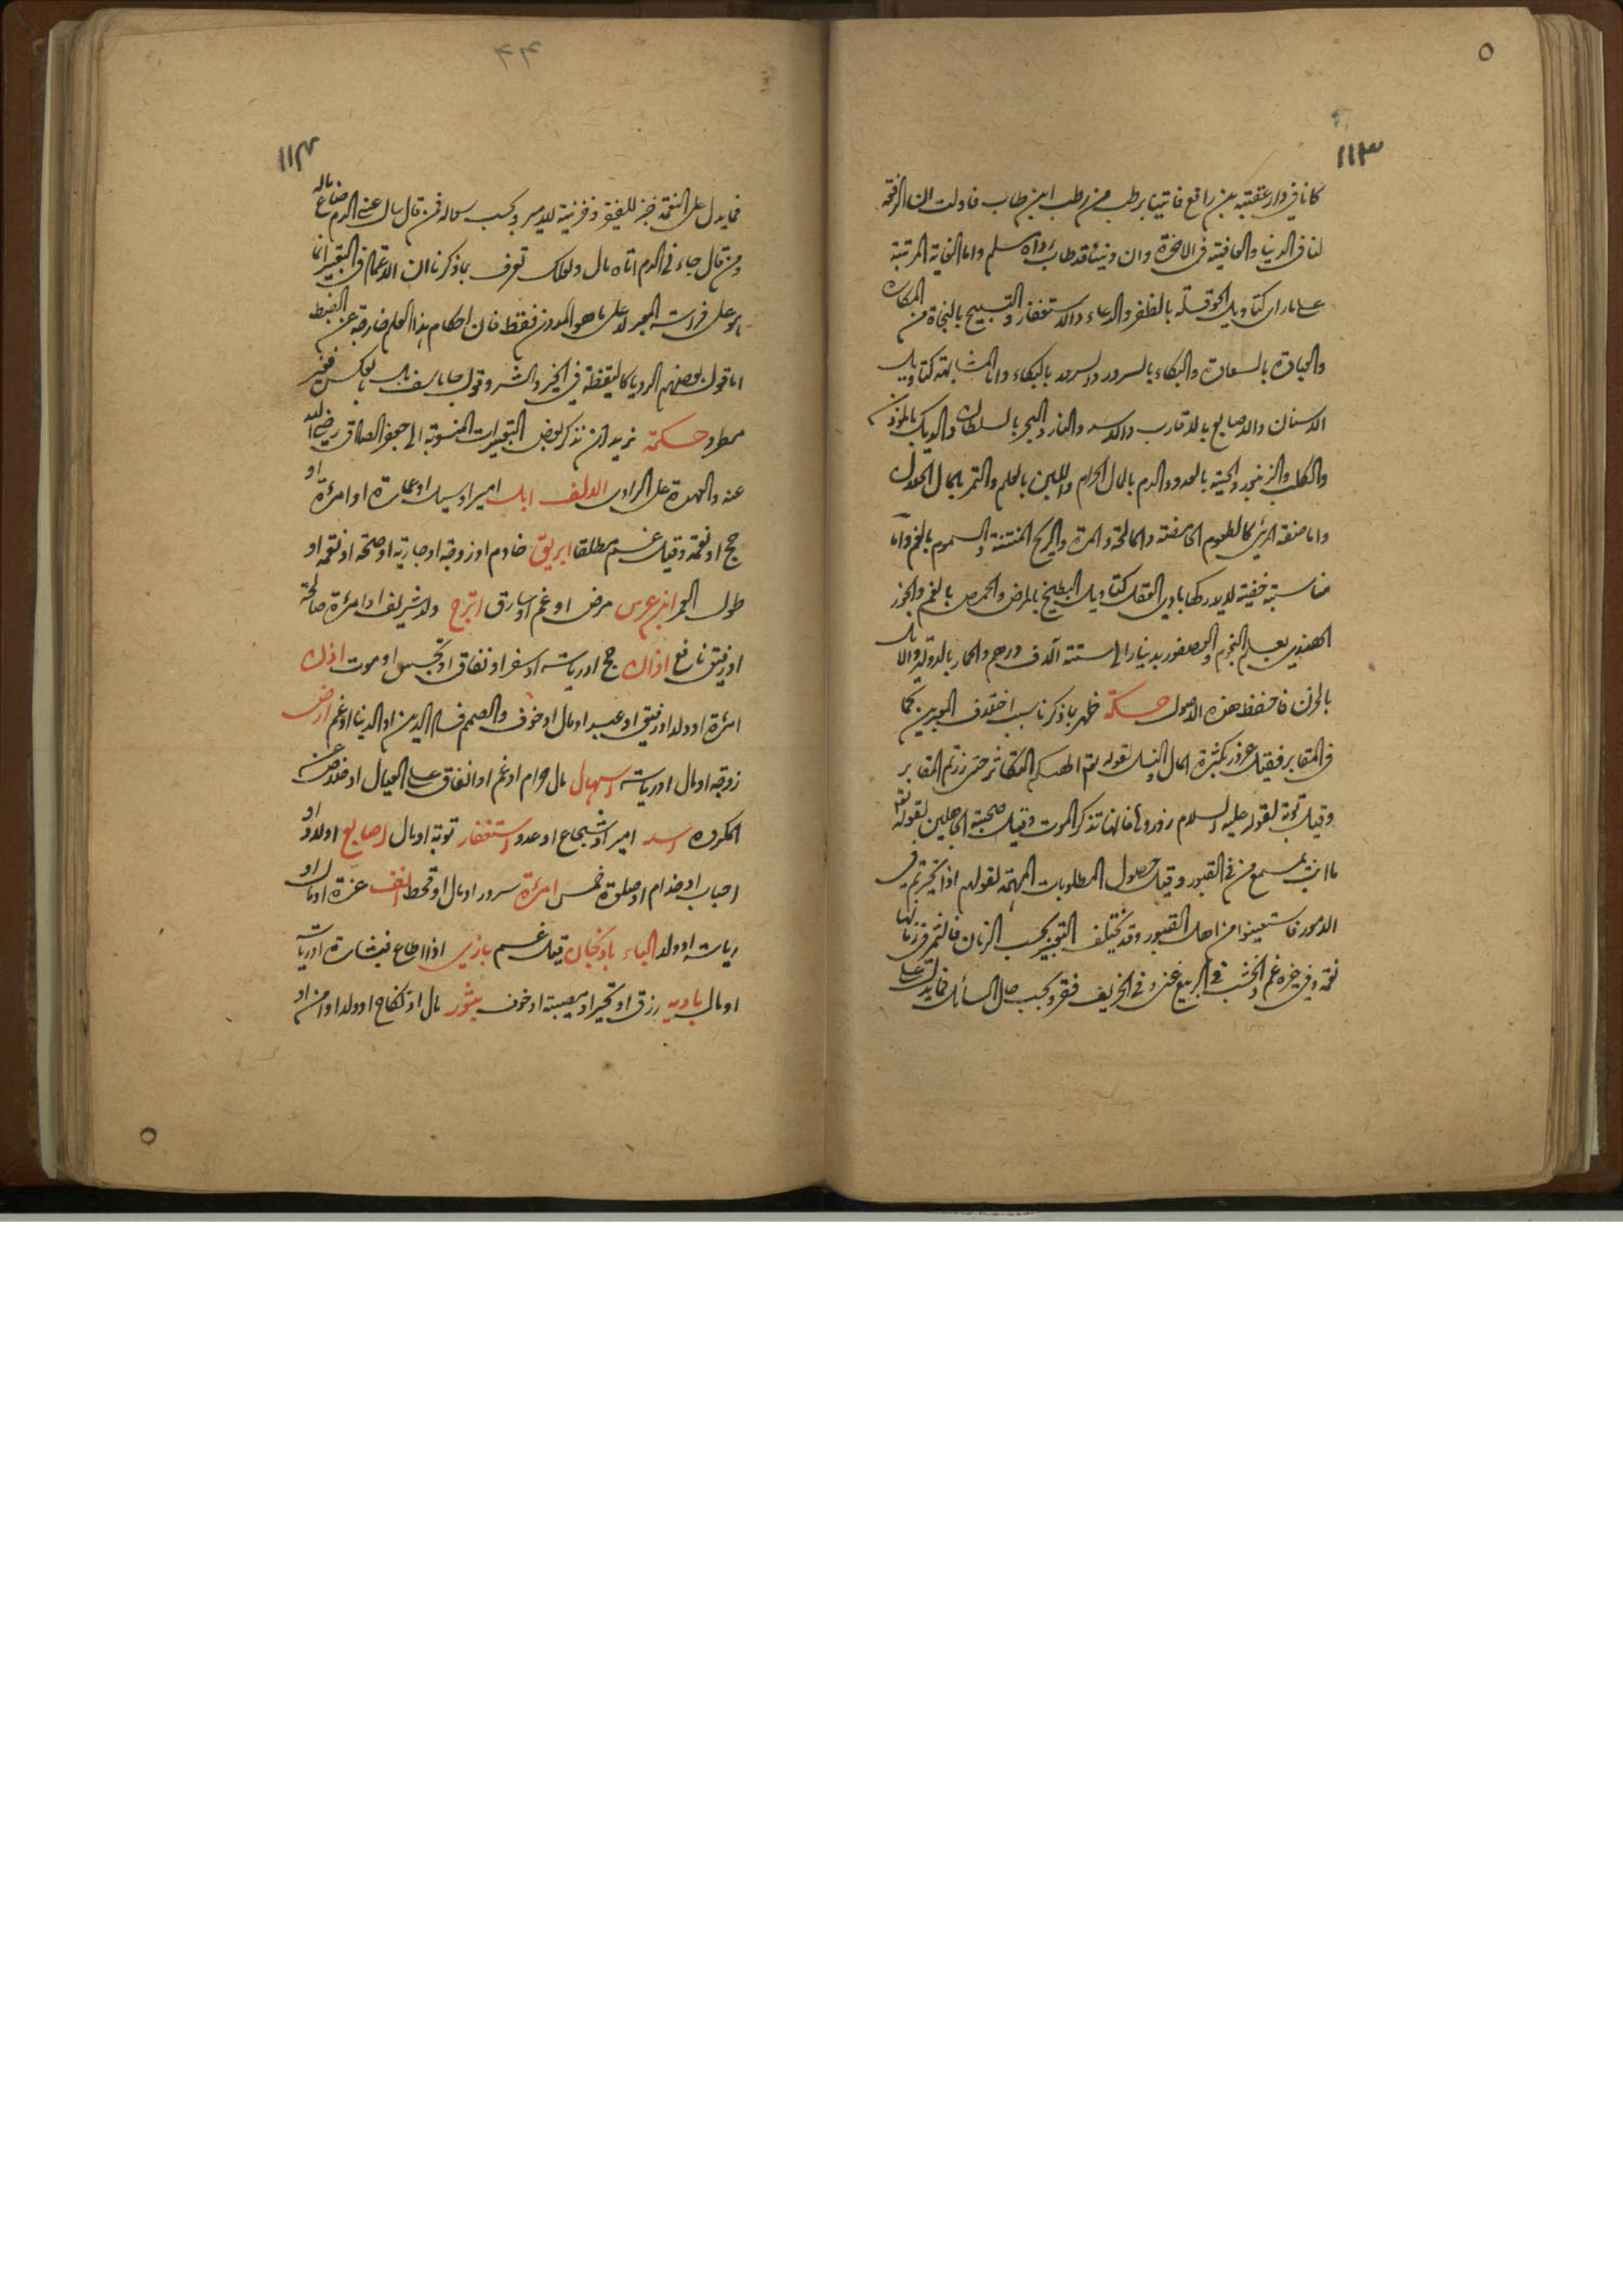 ١١٣
كانا في دار عقبة بن رافع فاتينا برطب من رطب ابن طاب فاولت ان الرفعة
لنا في الدنيا والعافية في الاخرة وان ديننا قد طاب رواه مسلم واما الغاية المرتبة
على ما راى كتاويل الحوقلة بالظفر والدعاء والاستغفار والتسبيح بالنجاة من المكاره
والعبادة بالسعادة والبكاء بالسرور والسرور بالبكاء واما المشابهة كتاويل
الاسنان والاصابع بالاقارب والاسد والنار والبحر بالسلطان والديك بالمؤذن
والكلب والزنبور والحية بالعدو والدم بالمال الحرام واللبن بالعلم والتمر بالمال الحلال
واما صفة المرئي كالطعوم الحامضة والمالحة والمرة والريح المنتنة والسموم بالغم واما
مناسبة خفية لا يدركها بادي العقل كتاويل البطيخ بالمرض والحمص بالغم والجوز
الهندي بعلم النجوم والعصفور بدينار الى ستة آلاف درهم والحمار بالدولة والابل
بالحزن فاحفظ هذه الاصول حكمة ظهر بما ذكرنا سبب اختلاف المعبرين كما
في المقابر فقيل عزور بكثرة المال والنسل لقوله تعم الهـكم التكاثر حتى زرتم المقابر
وقيل توبة لقوله عليه السلام زوروها فانها تذكر الموت وقيل صحبة الجاهلين لقوله تعم
ما انت بمسمع من في القبور وقيل حصول المطلوبات المهمة لقولهم اذا تحيرتم في
الامور فاستعينوا من اهل القبور وقد يختلف التعبير بحسب الزمان فالتمر في زمانها
نعمة وفي غيره غم والخشب في الربيع غنى وفي الخريف فقر وبحسب حال السائل فما يدل على
٤٤
١١٤
فما يدل على النقمة خير للفقير وخزينة للامير وبحسب سواله فمن قال سال عني الدم ضاع ماله
ومن قال جاءني الدم اتاه مال ولعلك تعرف بما ذكرنا ان الاعتماد في التعبير انما
هو على فراسة المعبر لا على ما هو المدون فقط فان احكام هذا العلم خارجة عن الضبط
اما قول بعضهم الرويا كاليقظة في الخير والشر وقول جاماسف بل بالعكس فغير
مطرد حكمة نريد ان نذكر بعض التعبيرات المنسوبة الى جعفر الصادق رضي الله
عنه والعهدة على الراوي الالف ابل امير او سيل او عمارة او امرءة او
حج او نعمة وقيل غنم مطلقا ابريق خادم او زوجة او جارية او صحة او نعمة او
طول العمر ابن عرس مرض او غم او سارق اترج ولد شريف او امرءة صالحة
او رفيق نافع اذان حج او رياسة او سفر او نفاق او تجسس او موت اذن
امرءة او ولد او رفيق او عبد او مال او خوف والصمم فساد الدين او الدنيا او غم ارض
زوجة او مال او رياسة اسهال مال حرام او غم او انفاق على العيال او خلاص عن
المكروه اسد امير او شجاع او عدو استغفار توبة او مال اصابع اولاد او
احباب او خدام او صلوة خمس امرءة سرور او مال او قحط انف عزة او مال او
رياسة او ولد الباء باذنجان قيل غنم بازي اذا اطاع فبشارة او رياسة
او مال بادية رزق او تحير او مصيبة او خوف بثور مال او نكاح او ولد او امن او